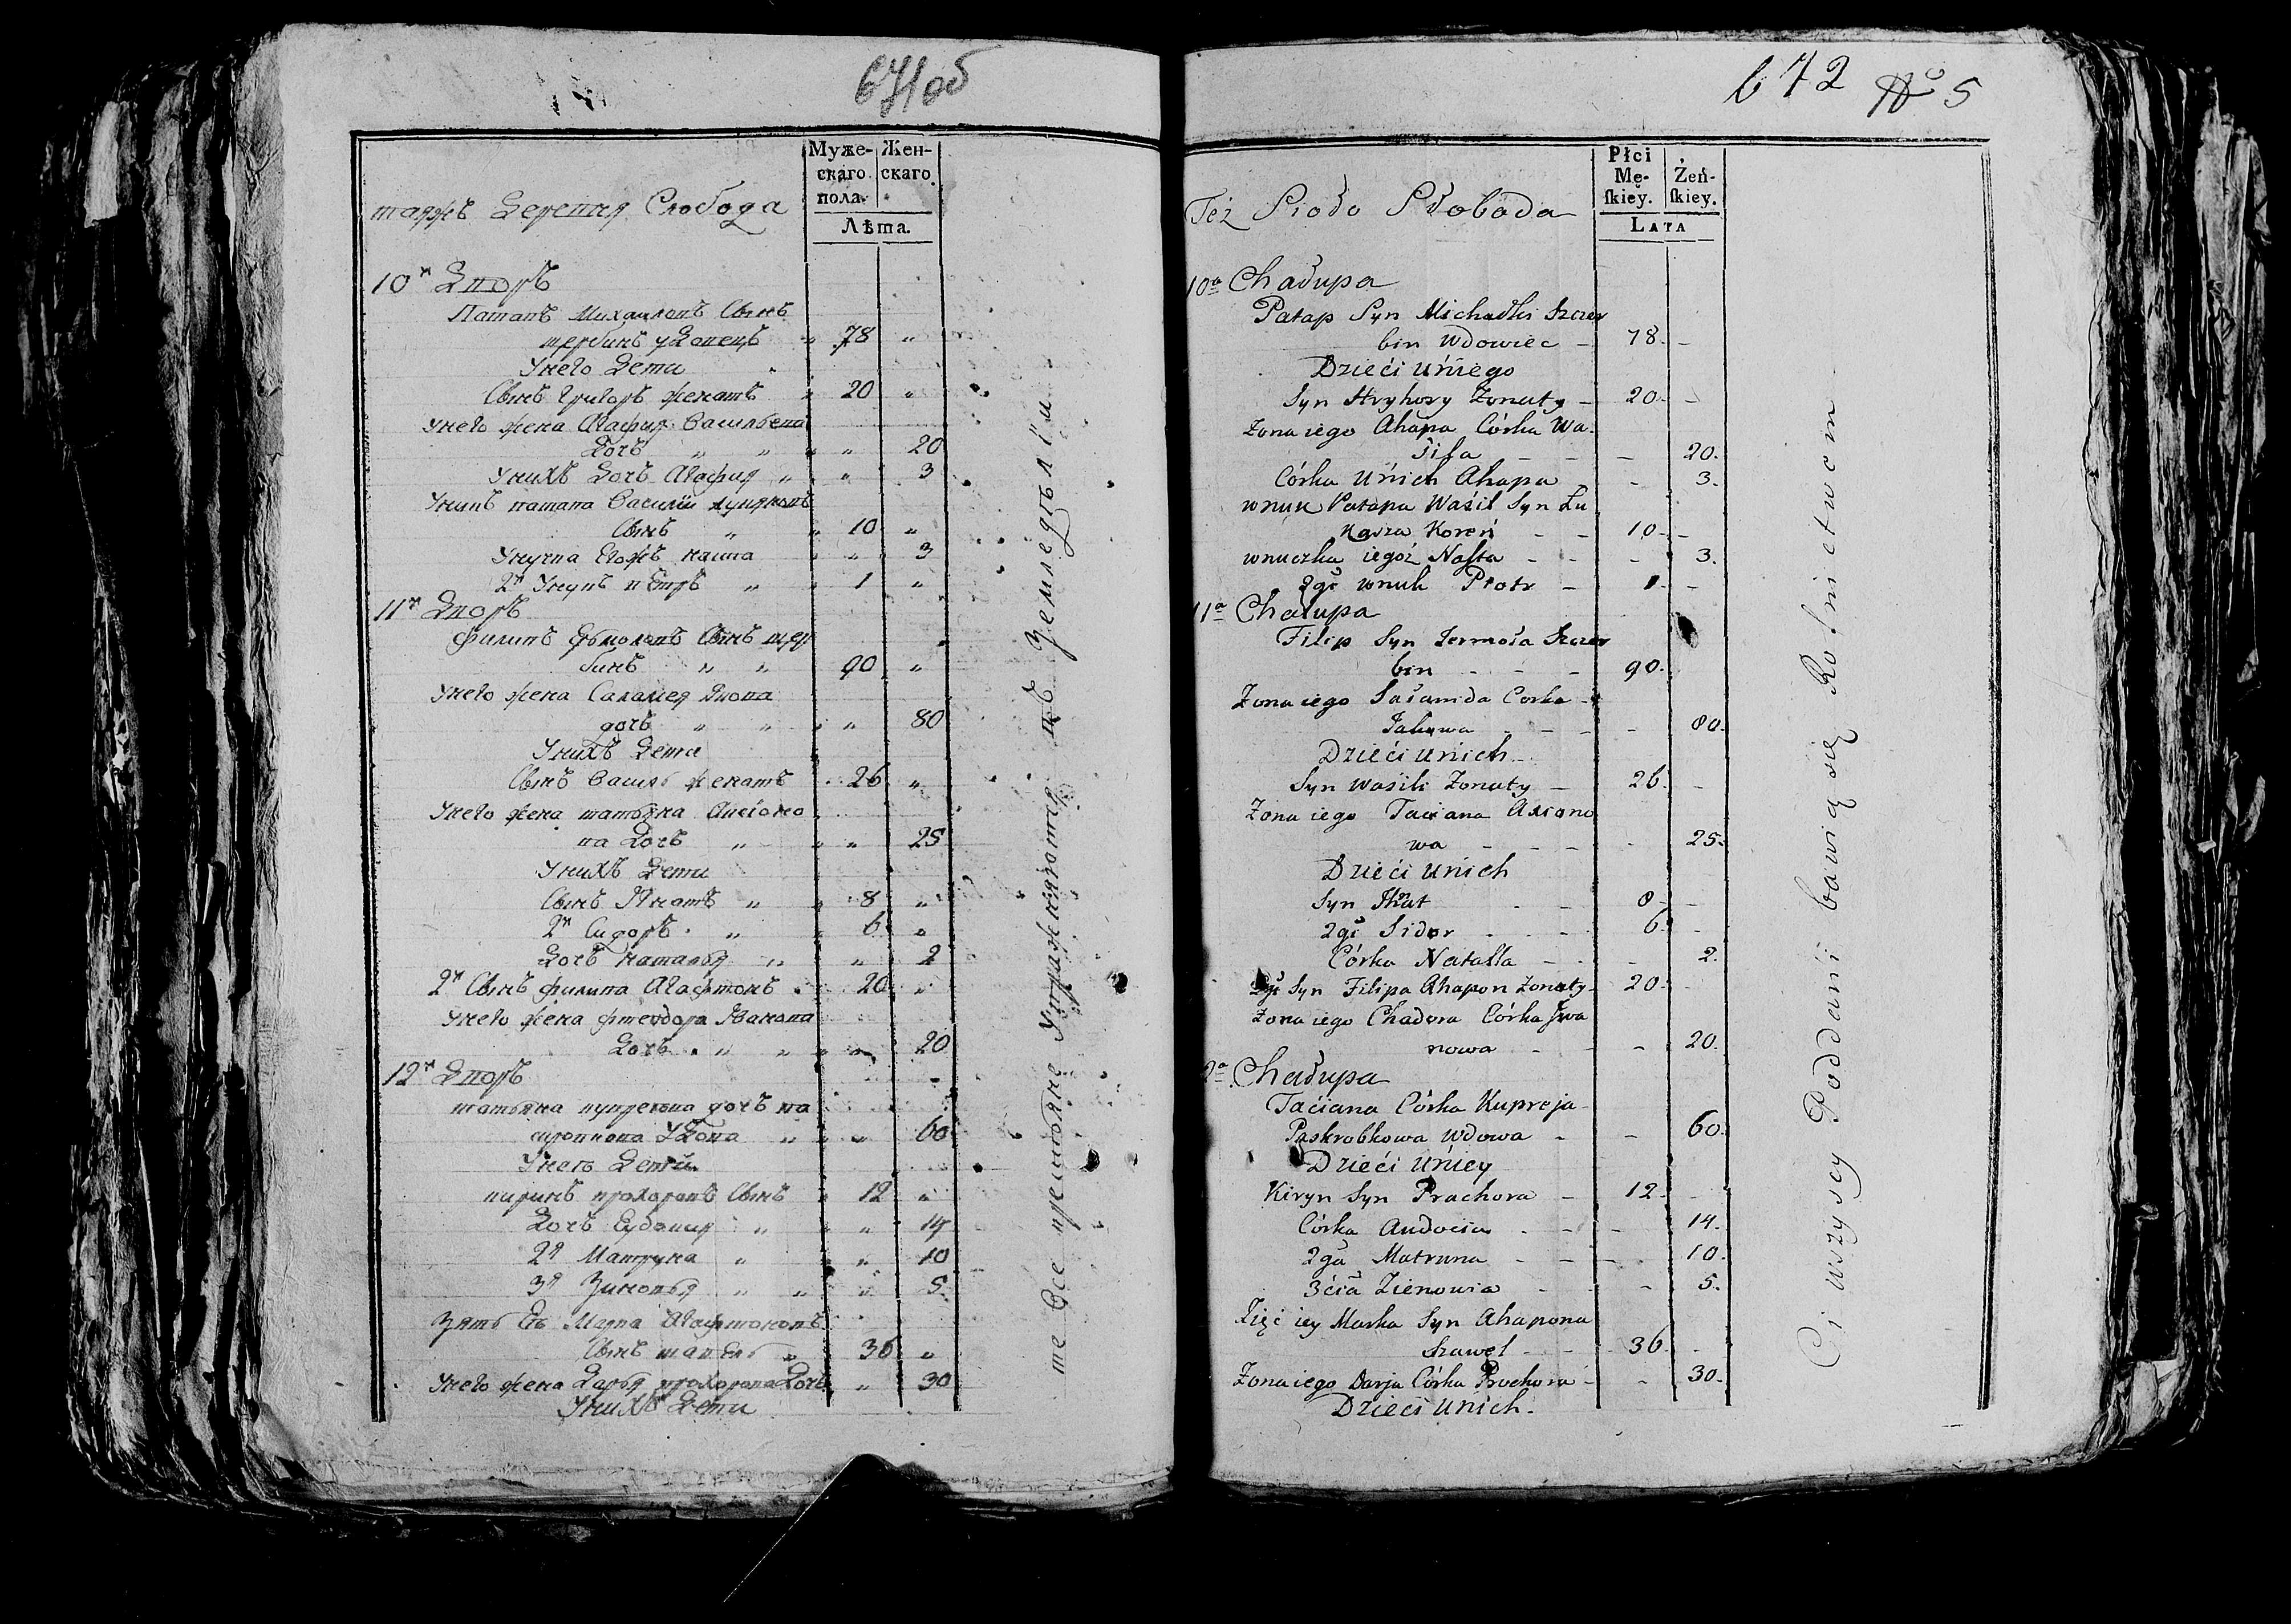 671 об
Муже-
скаго
пола.
Жен-
скаго.
Лѣта.
таяжъ Деревня Слобода
10я Дворъ
Патапъ Михаиловъ Сынъ
щербинъ удовецъ " 78 "
Унего Дети
Сынъ Григоръ женатъ " 20 "
Унего жена Агафия Васильева
Дочъ " " " " 20
Унихъ Дочъ Агафия " " 3
Унукъ патапа Василий лукяновъ
Сынъ " " 10 "
Унучка Егожъ настя " " 3
2й Унукъ пётръ " " 1 "
11я Дворъ
Филипъ Ермоловъ Сынъ щер
бинъ " " 90 "
Унего жена Саламея Якова
дочъ " " " " 80
Унихъ Дети
Сынъ Василь женатъ " 26 "
Унего жена татьяна Аксіоно
ва Дочъ " " " 25
Унихъ Дети
Сынъ Игнатъ " " 8 "
2й Сидоръ " " 6 "
Дочъ наталья " " 2
2й Сынъ филипа Агафтонъ " 20 "
Унего жена фтеодора Иванова
Дочъ " " " " 20
12я Дворъ
татьяна купреева дочъ па
Удова " " " 60
Унего Дети
киринъ прохоровъ Сынъ " 12 "
Дочъ Евдокия " " " 14
2я Матруна " " 10
3я Зиновья " " " 5
Зять Её Марка Агафтоновъ
Сынъ шавель " 36 "
Унего жена Дарья прохорова Дочъ " 30
Унихъ Дети
те Все крестьяне Упражняются въ Земледѣліи
672 № 5
Płci
Mę-
skiey.
Żeń-
skiey.
LATA
Też Sioło Słoboda
10a Chałupa
Patap Syn Michałki Szczer
bin Wdowiec – 78. –
Dzieći Uńiego
Syn Hryhory Żonaty – 20. –
Żona iego Ahapa Córka Wa
śila – – – 20.
Córka Uńich Ahapa – – 3.
wnuk Patapa Waśil Syn Łu
kasza Koreń – – 10. –
wnuczka iegoż Nasta – – – 3.
2gi wnuk Piotr – 1. –
11a Chałupa
Filip Syn Jermoła Szczer
bin – – – 90.
Żona iego Sałamida Corka
Jakowa – – – – 80.
Dzieći uńich
Syn Waśili Żonaty – 26. –
Żona iego Taciana Axiono
wa – – – – 25.
Dzieći Uńich
Syn Ihnat – – 8. –
2gi Sidor – – – 6. –
Córka Natalla – – – 2.
2gi Syn Filipa Ahapon Żonaty – 20. –
Żona iego Chadora Córka Jwa
nowa – – – 20.
2a Chałupa
Taciana Córka Kupreja
Paskrobkowa Wdowa – – 60.
Dzieći Uńiey
Kiryn Syn Prachora – 12. –
Córka Audocia – – – 14.
2ga Matruna – – – 10.
3cia Zienowia – – – 5.
Zięć iey Marka Syn Ahapona
Szawel – – 36. –
Żona iego Darja Córka Prochora – – 30.
Dzieći Uńich.
Ci wszyscy Poddani bawią się Rolnictwem